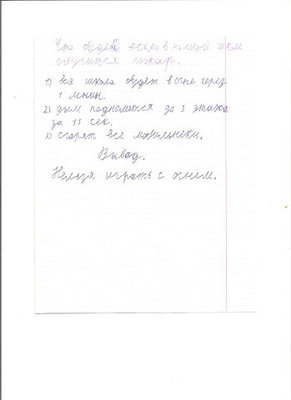 Что будет если в нашем
случится пожар.
1) Вся школа будет в огне через
1 минут.
2) дым поднимется до 3 этажа
за 15 сек.
3) сгорят все мобильники.
Вывод.
Нельзя играть с огнём.